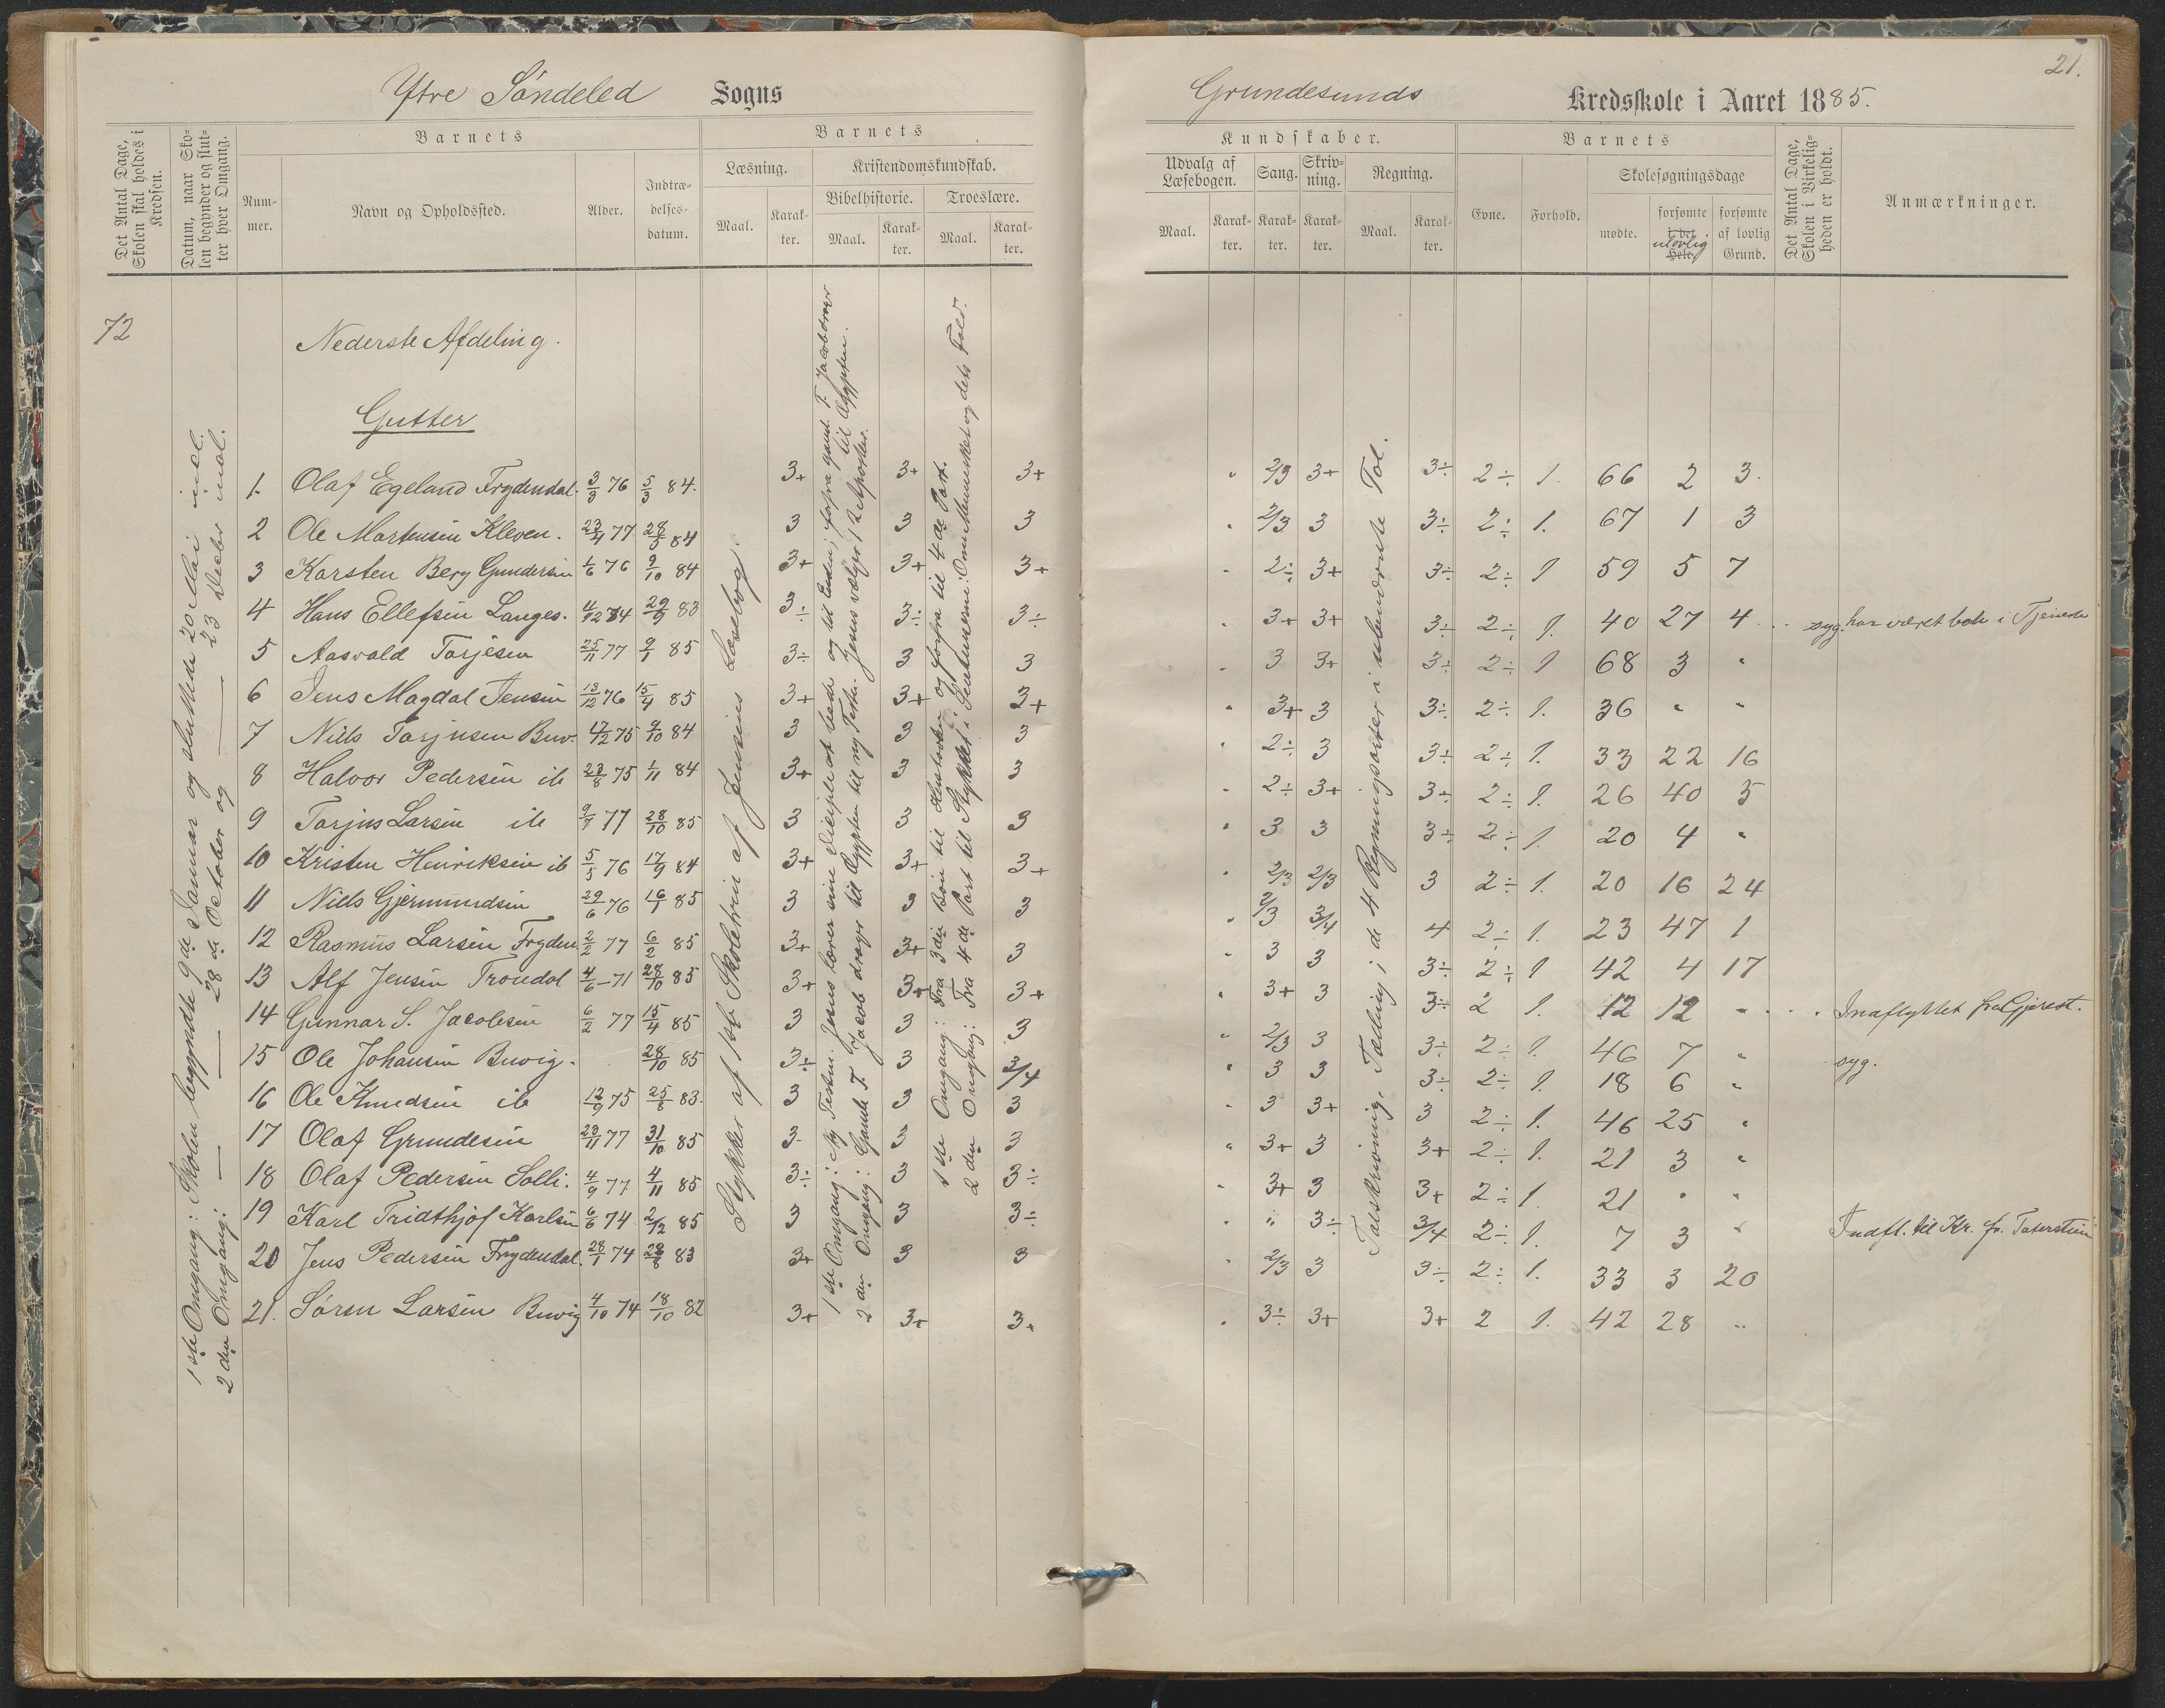 Ytre Söndeled Sogns
Det Antal Dage, Skolen skal holdes i Kredsen.
Datum, naar Skolen begynder og slutter hver Omgang.
Barnets
Nummer.
Navn og Opholdssted.
Alder.
Indtrædelsesdatum.
Barnets
Læsning.
Maal.
Karakter.
Kristendomskundskab.
Bibelhistorie.
Maal.
Karakter.
Troeslære.
Maal.
Karakter.
72
Nederste Afdeling.
Gutter
1ste Omgang: Skolen begyndte 9de Januar og sluttede 20 Mai incl.
2den Omgang: — — 28de October og — 23 Decbr incl.
Stykker af 1ste Skoletrin af Jensens Læsebog.
1ste Omgang: Ny Testm. Jesus lærer sine Disciple at bede og til Enden; forfra gaml. T. Jacob drager til Ægypten.
2den Omgang: Gamle T. Jacob drager til Ægypten til ny Testm. Jesus vælger 12 Apostler.
1ste Omgang: Fra 3die Bøn til Hustavlen og forfra til 4de Part.
2den Omgang: Fra 4de Part til Stykket: Om Mennesket og dets Fald.
1. Olaf Egeland Frydendal. 3/3 76 5/3 84. 3+ 3+ 3+
2 Ole Mortensen Kleven. 23/4 77 28/5 84 3 3 3
3 Karsten Berg Gundersen 1/6 76 9/10 84 3+ 3+ 3+
4 Hans Ellefsen Langes. 4/12 74 29/9 83 3÷ 3÷ 3÷
5 Aasvald Torjesen 25/11 77 9/1 85 3÷ 3 3
6 Jens Magdal Jensen 13/12 76 15/4 85 3+ 3+ 3+
7 Niels Torjusen Buv. 17/2 75 9/10 84 3 3 3
8 Halvor Pedersen ib 23/8 75 1/11 84 3+ 3 3
9 Torjus Larsen ib 9/7 77 28/10 85 3 3 3
10 Kristen Henriksen ib 5/5 76 17/9 84 3+ 3+ 3+
11 Niels Gjermundsen 29/6 76 16/1 85 3 3 3
12 Rasmus Larsen Fryden. 2/2 77 6/2 85 3+ 3+ 3
13 Alf Jensen Trondal 4/6 71 28/10 85 3+ 3+ 3+
14 Gunnar S. Jacobsen 6/2 77 15/4 85 3 3 3
15 Ole Johansen Buvig. 28/10 85 3÷ 3 3/4
16 Ole Knudsen ib 12/9 75 25/8 83. 3 3 3
17 Olaf Grundesen 23/11 77 31/10 85 3 3 3
18 Olaf Pedersen Solli. 4/9 77 4/11 85 3÷ 3 3÷
19 Karl Fridthjof Karlsen 6/6 74 2/12 85 3 3 3÷
20 Jens Pedersen Frydendal. 28/1 74 83 3+ 3 3
21. Sören Larsen Buvig 4/10 74 18/10 82 3+ 3+ 3+
21.
Grundesunds Kredsskole i Aaret 1885.
Kundskaber.
Udvalg af Læsebogen.
Maal.
Karakter.
Sang.
Karakter.
Skrivning.
Karakter.
Regning.
Maal.
Karakter.
Barnets
Evne.
Forhold.
Skolesøgningsdage
mødte.
forsømte i det Hele. ulovlig
forsømte af lovlig Grund.
Det Antal Dage, Skolen i Virkeligheden er holdt.
Anmærkninger.
Talskrivning, Tælling i de 4 Regningsarter i ubenævnte Tal.
" 2/3 3+ 3÷ 2÷ 1. 66 2 3.
" 2/3 3 3÷ 2÷ 1. 67 1 3
" 2÷ 3+ 3÷ 2÷ 1 59 5 7
" 3+ 3+ 3÷ 2÷ 1. 40 27 4 syg. har været i Tjeneste
" 3 3+ 3÷ 2÷ 1 68 3 "
" 3+ 3 3÷ 2÷ 1. 36 " "
" 2÷ 3 3÷ 2÷ 1. 33 22 16
" 2÷ 3+ 3÷ 2÷ 1. 26 40 5
" 3 3 3÷ 2÷ 1. 20 4 "
" 2/3 2/3 3 2÷ 1. 20 16 24
" 2/3 3/4 4 2÷ 1. 23 47 1
" 3 3 3÷ 2÷ 1 42 4 17
" 3+ 3 3÷ 2 1. 12 12 " Indflyttet fra Gjerest.
" 2/3 3 3÷ 2÷ 1. 46 7 " syg.
" 3 3 3÷ 2÷ 1. 18 6 "
" 3 3+ 3 2÷ 1. 46 25 "
" 3+ 3 3+ 2÷ 1. 21 3 "
" 3+ 3 3+ 2÷ 1. 21 " "
" " 3÷ 3/4 2÷ 1. 7 3 " Indfl. til Kr. fr.
" 2/3 3 3÷ 2÷ 1. 33 3 20
" 3÷ 3+ 3+ 2 1. 42 28 "